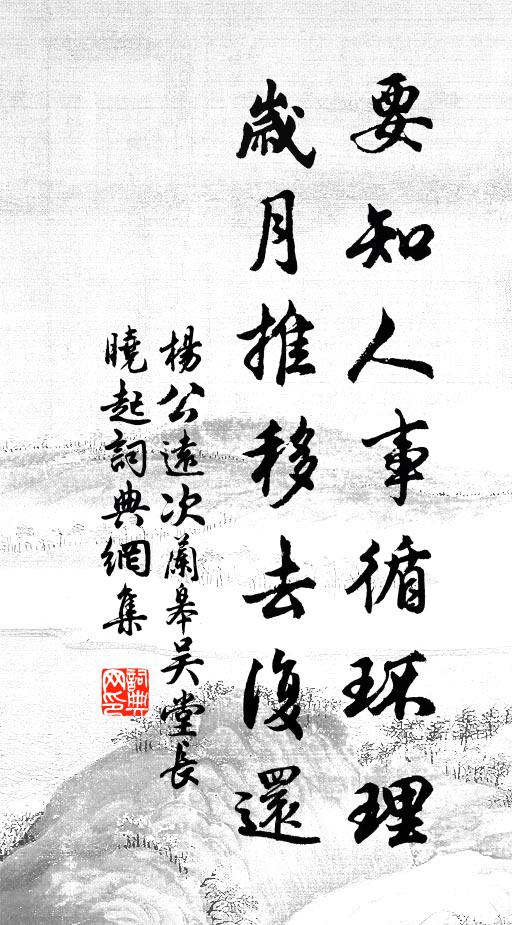 要知人事循环理
歲月推移去復還
楊公遠次蘭皋吴堂長
曉起詞典網集
詞典网印